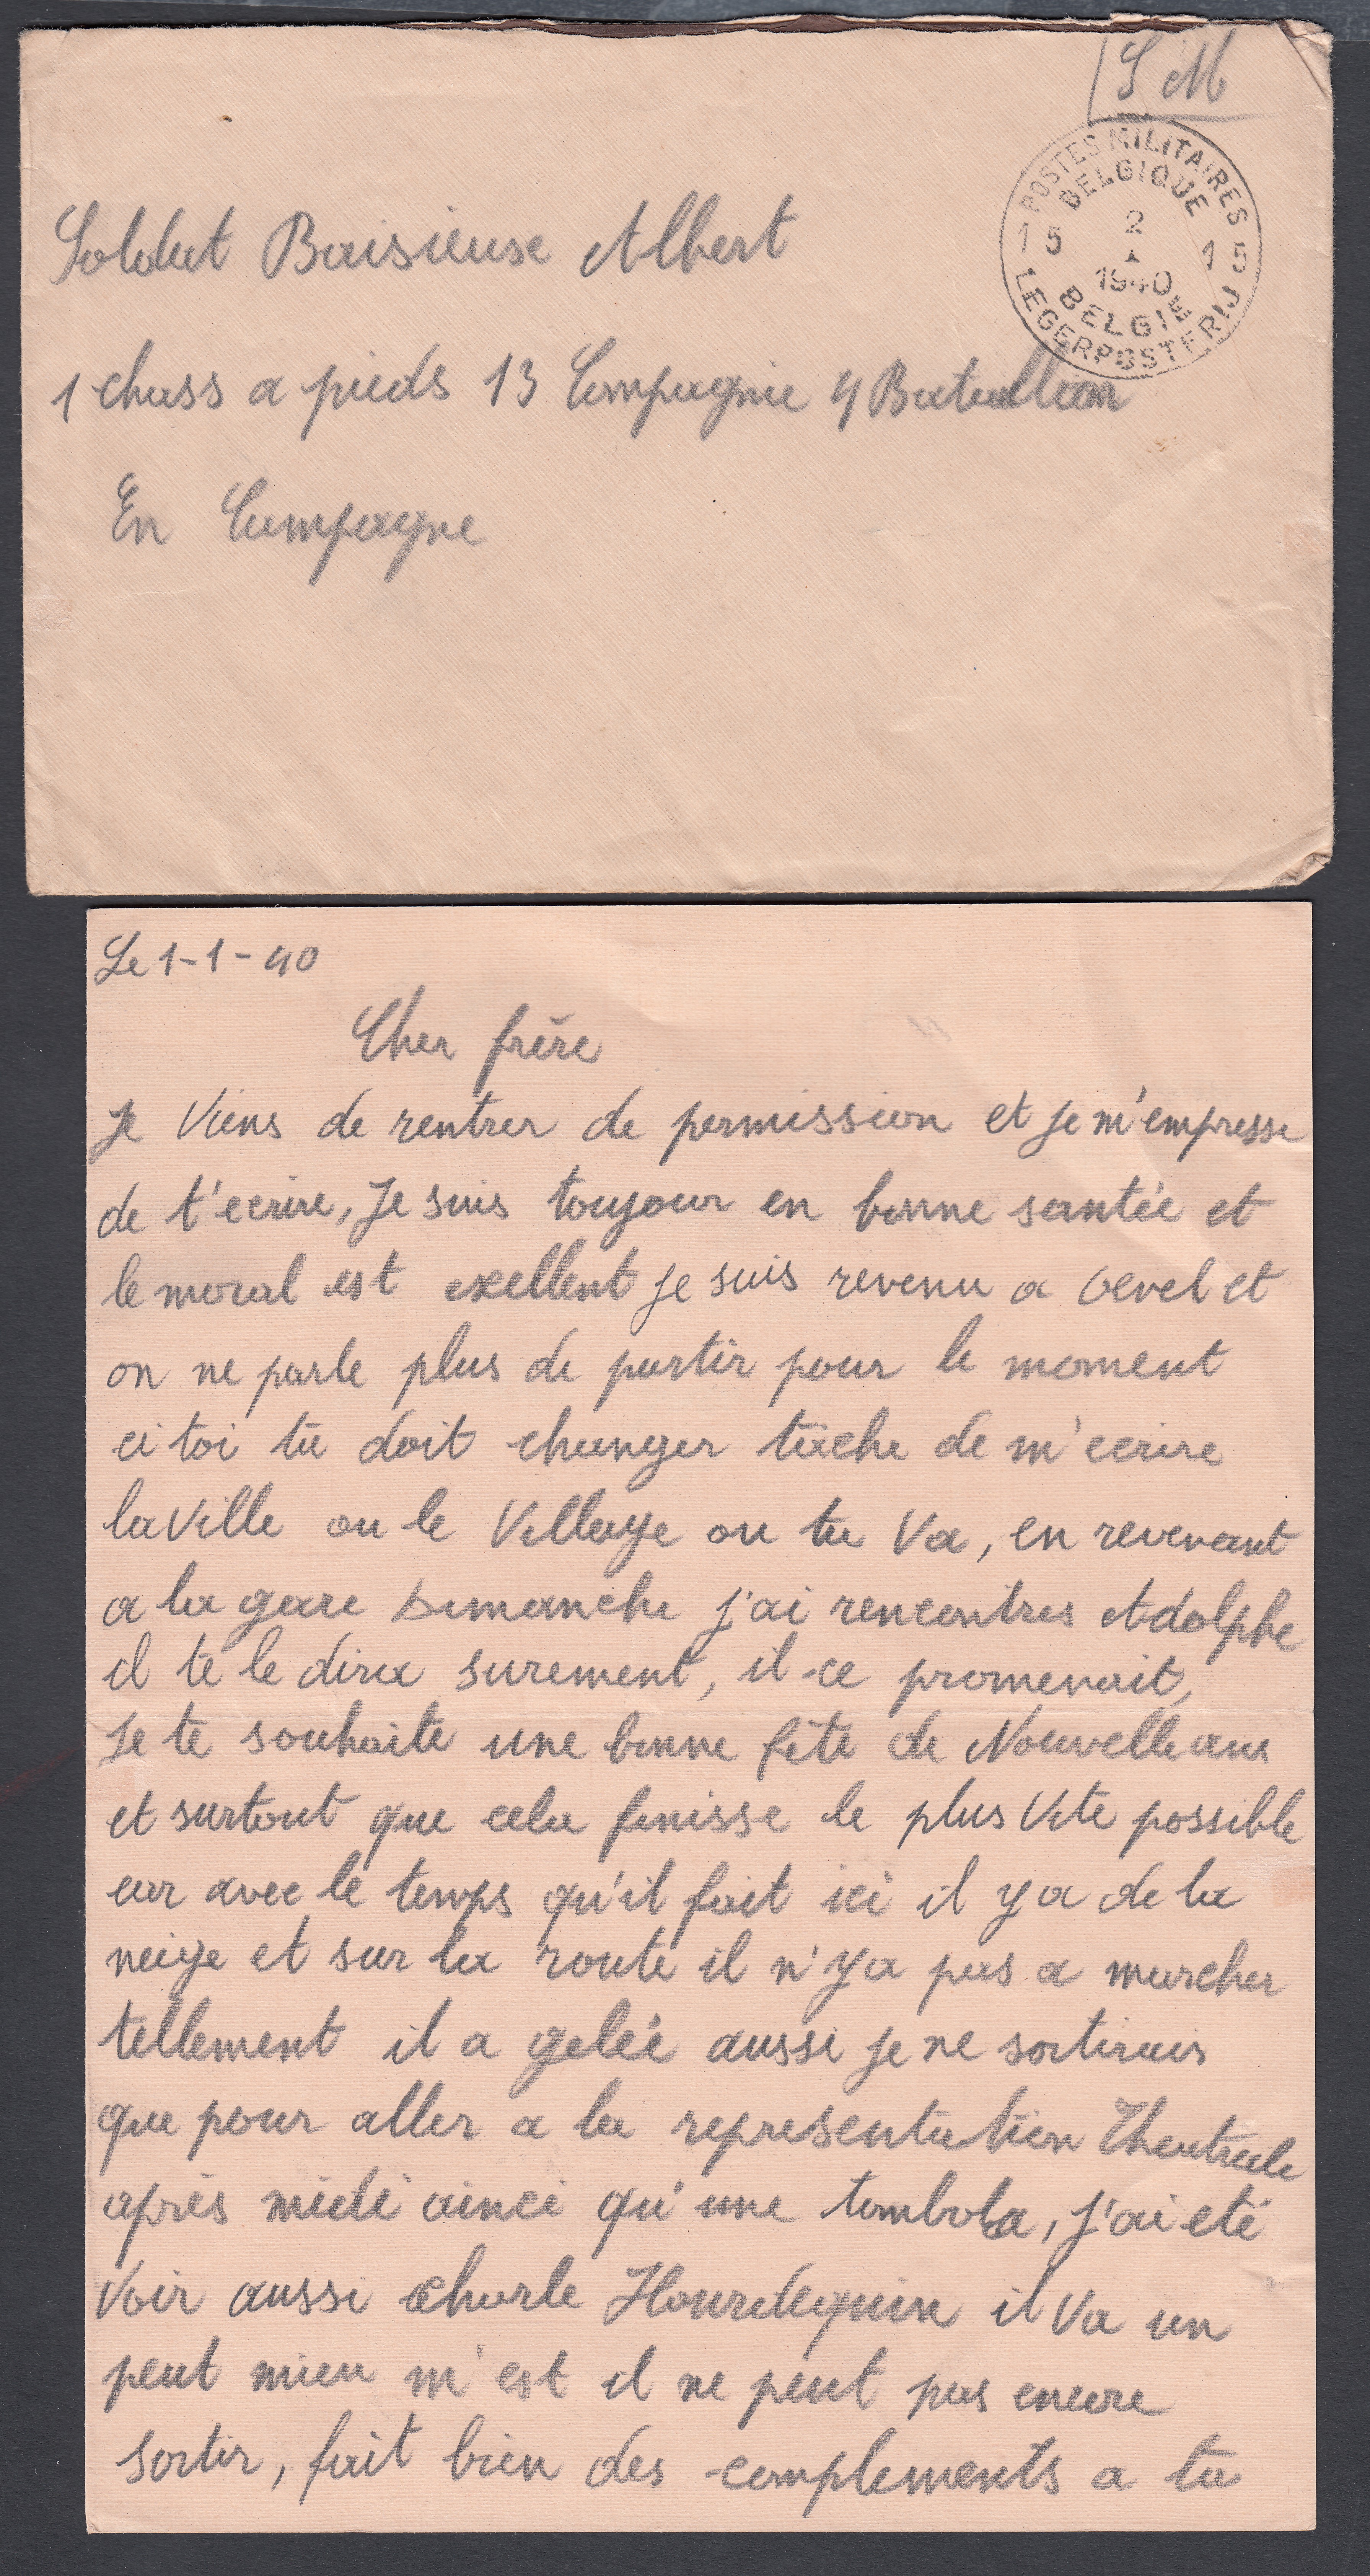 S M
POSTES MILITAIRES
BELGIQUE
15 2 15
1
1940
BELGIE
LEGERPOSTERIJ
Soldat Baisieuse Albert
1 chass a pieds 13 Compagnie 4 Bataillon
En Campagne
Le 1-1-40
Cher frère
Je Viens de rentrer de permission et je m'empresse
de t'ecrire, Je suis toujour en bonne santée et
le moral est exellent je suis revenu a bevel et
on ne parle plus de partir pour le moment
ci toi tu doit changer tache de m'ecrire
la Ville ou le Village ou tu Va, en revenant
a la gare Dimanche j'ai rencontres Adolphe
il te le dira surement, il ce promenait,
Je te souhaite une bonne fête de Nouvelle ans
et surtout que cela finisse le plus Vite possible
car avec le temps qu'il fait ici il y a de la
neige et sur la route il n'y a pas a marcher
tellement il a gelée aussi je ne sortirais
que pour aller a la representation Theatrale
après midi ainci qu'une tombola, j'ai eté
Voir aussi Charle Hourdequin il Va un
peut mieu m'est il ne peut pas encore
sortir, fait bien des complements a ta